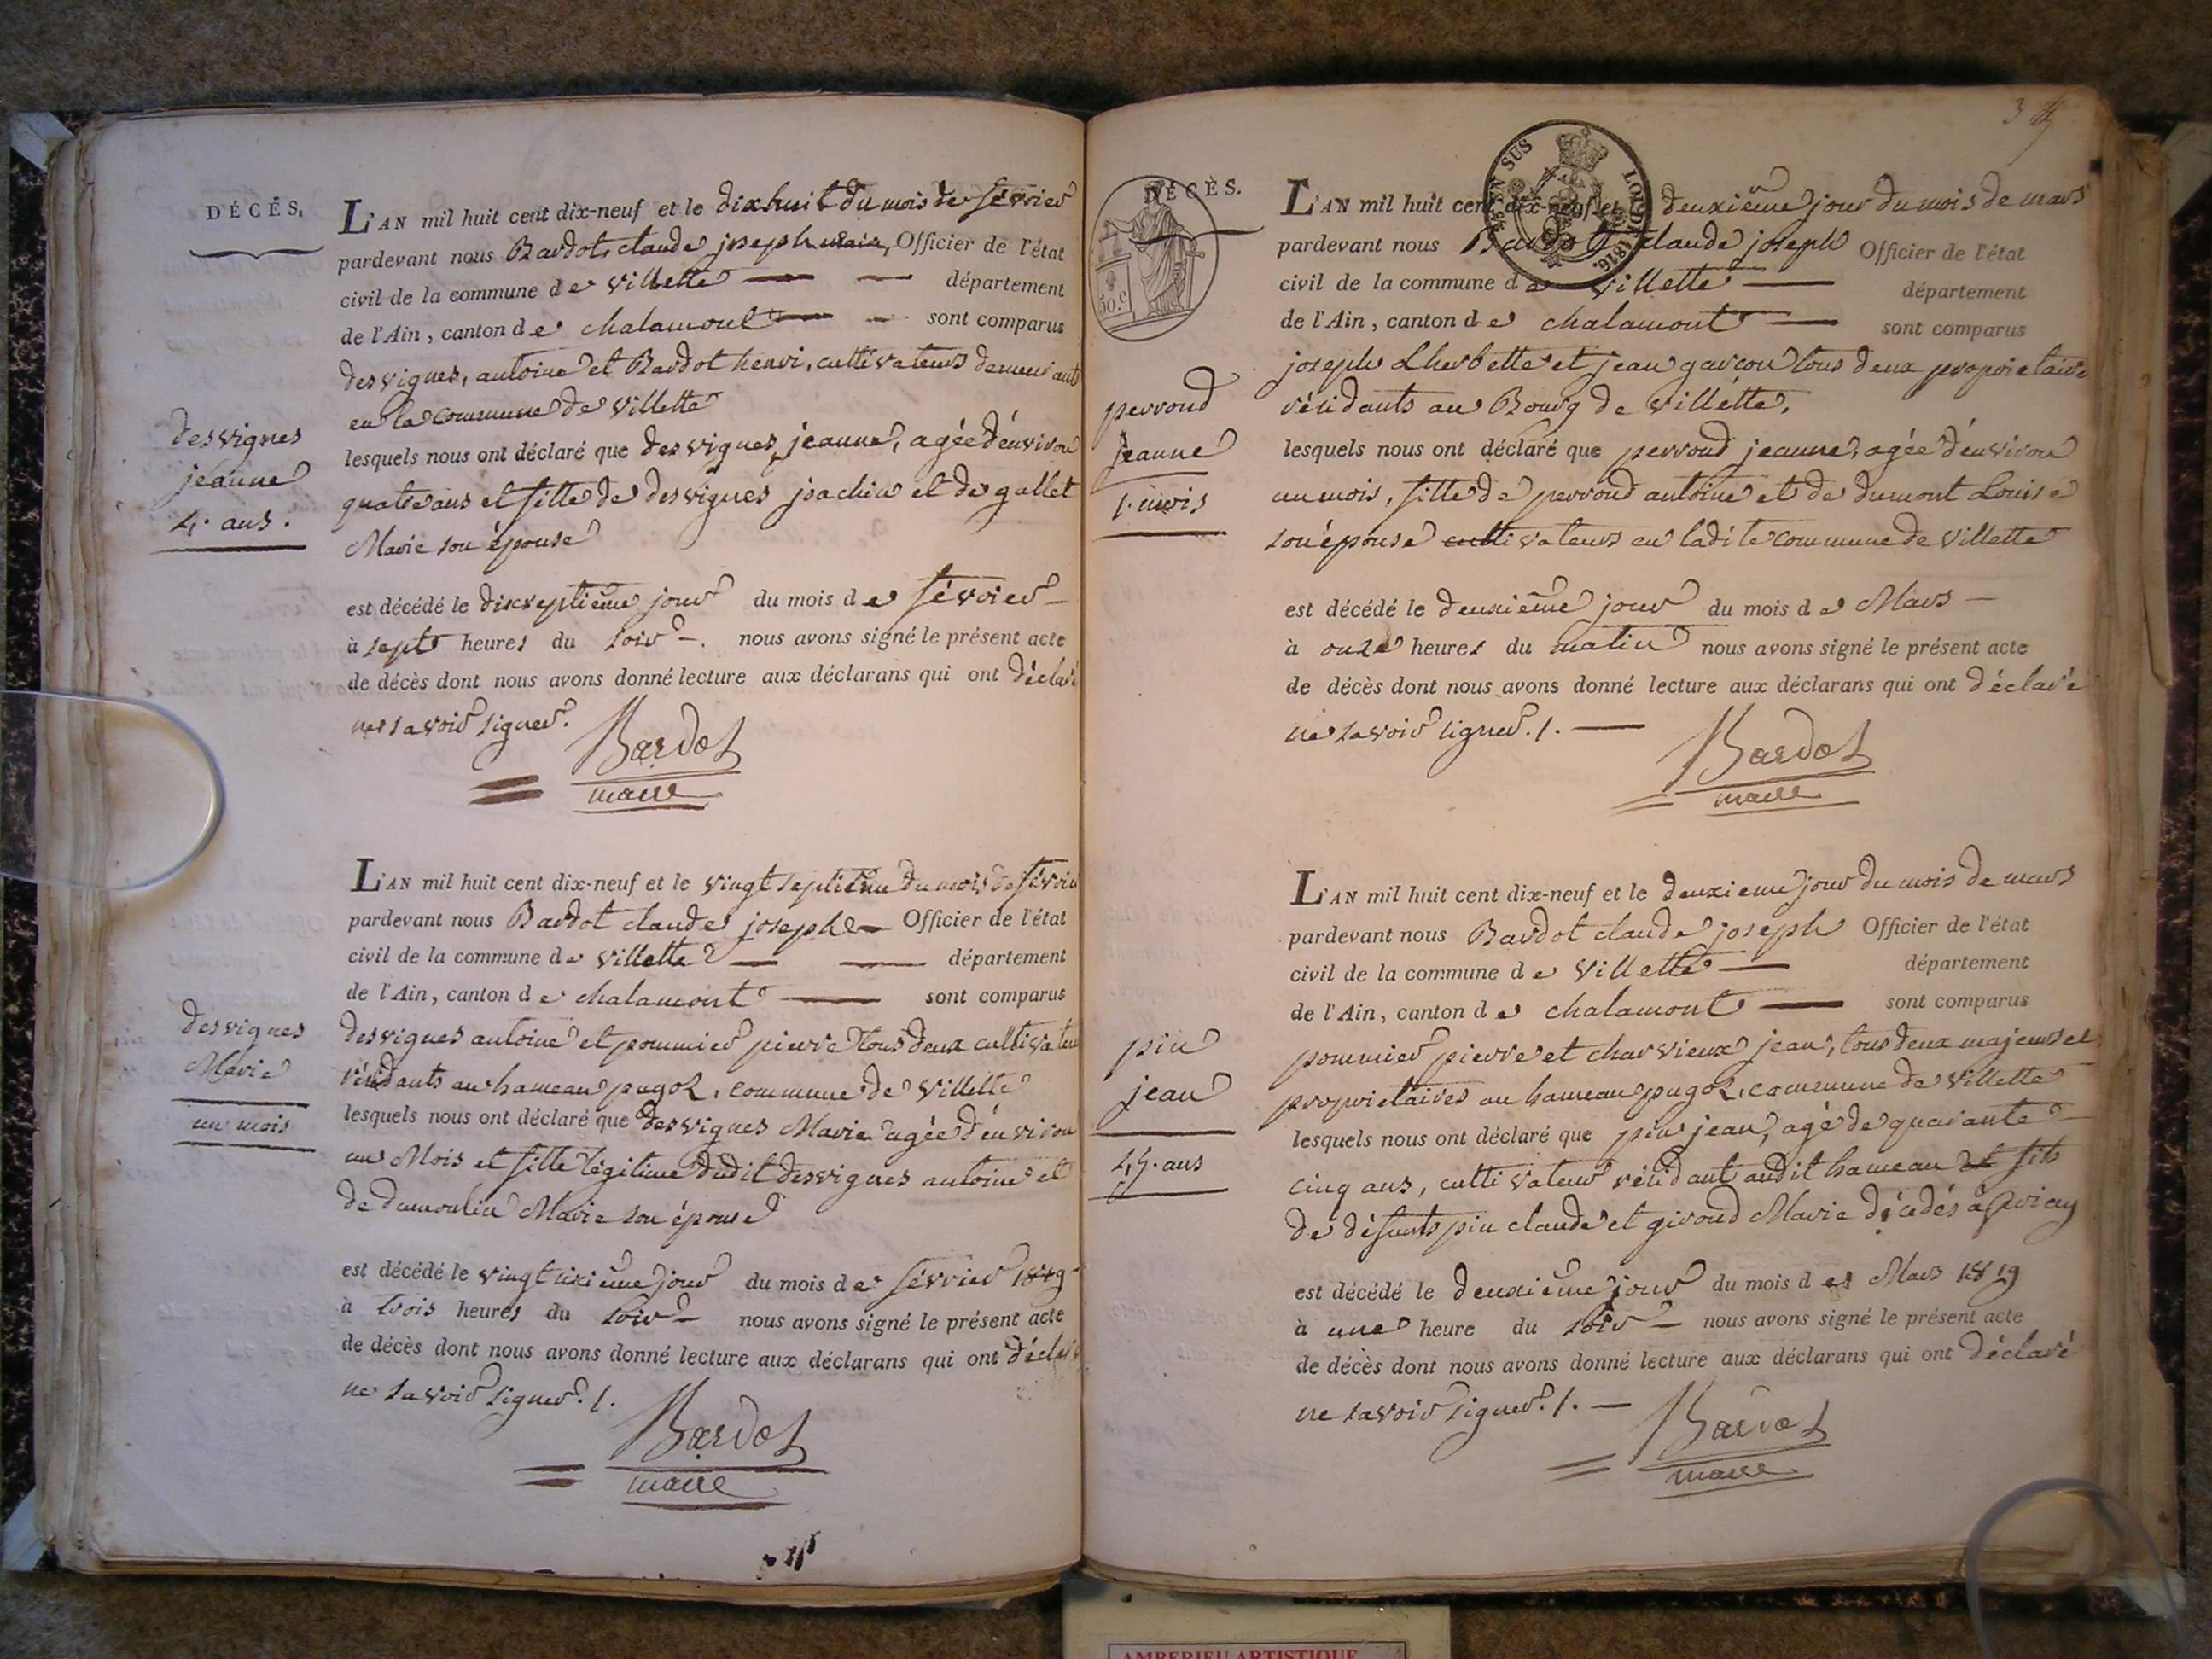 DÉCÈS.
L'AN mil huit cent dix-neuf et le dixhuit du mois de février
pardevant nous Bardot claude joseph maire, Officier de l'état
civil de la commune de Villette département
de l'Ain, canton de chalamont sont comparus
desvignes, antoine et Bardot henri, cultivateurs demeurants
en la commune de Villette
desvignes
jeanne
4. ans.
lesquels nous ont déclaré que desvignes, jeanne, agée d'environ
quatre ans et fille de desvignes joachim et de gallet
Marie son épouse
est décédé le dixseptième jour du mois de février
à sept heures du soir. nous avons signé le présent acte
de décès dont nous avons donné lecture aux déclarans qui ont déclaré
ne savoir signer.
Bardot
maire
L'AN mil huit cent dix-neuf et le vingt septième du mois de février
pardevant nous Bardot claude joseph Officier de l'état
civil de la commune de Villette département
de l'Ain, canton de chalamont sont comparus
desvignes antoine et pommier pierre tous deux cultivateurs
résidants au hameau pugoz, commune de Villette
desvignes
Marie
un mois
lesquels nous ont déclaré que desvignes Marie agée d'environ
un Mois et fille légitime dudit desvignes antoine et
de dumoulin Marie son épouse
est décédé le vingt sixième jour du mois de février 1819
à trois heures du soir nous avons signé le présent acte
de décès dont nous avons donné lecture aux déclarans qui ont déclaré
ne savoir signer./.
Bardot
maire
DÉCÈS.
50.c
LOI DE 1816.
L'AN mil huit cent dix-neuf et le deuxième jour du mois de mars
pardevant nous Bardot claude joseph Officier de l'état
civil de la commune de Villette département
de l'Ain, canton de chalamont sont comparus
joseph Lherbette et jean garcon tous deux propriétaire
résidants au Bourg de Villette,
perroud
jeanne
1. mois
lesquels nous ont déclaré que perroud jeanne, agée d'environ
un mois, fille de perroud antoine et de dumont Louise
son épouse cultivateurs en ladite commune de Villette
est décédé le deuxième jour du mois de Mars
à onze heures du matin nous avons signé le présent acte
de décès dont nous avons donné lecture aux déclarans qui ont déclaré
ne savoir signer./.
Bardot
maire
L'AN mil huit cent dix-neuf et le deuxieme jour du mois de mars
pardevant nous Bardot claude joseph Officier de l'état
civil de la commune de Villette département
de l'Ain, canton de chalamont sont comparus
pommier pierre et charvieux jean, tous deux majeurs et
propriétaires au hameau pugoz, commune de Villette
pin
jean
45. ans
lesquels nous ont déclaré que pin jean, agé de quarante
cinq ans, cultivateur résidant audit hameau et fils
de défunts pin claude et giroud Marie décédés à
est décédé le deuxième jour du mois de Mars 1819
à une heure du soir nous avons signé le présent acte
de décès dont nous avons donné lecture aux déclarans qui ont déclaré
ne savoir signer./.
Bardot
maire
AMBERIEU ARTISTIQUE